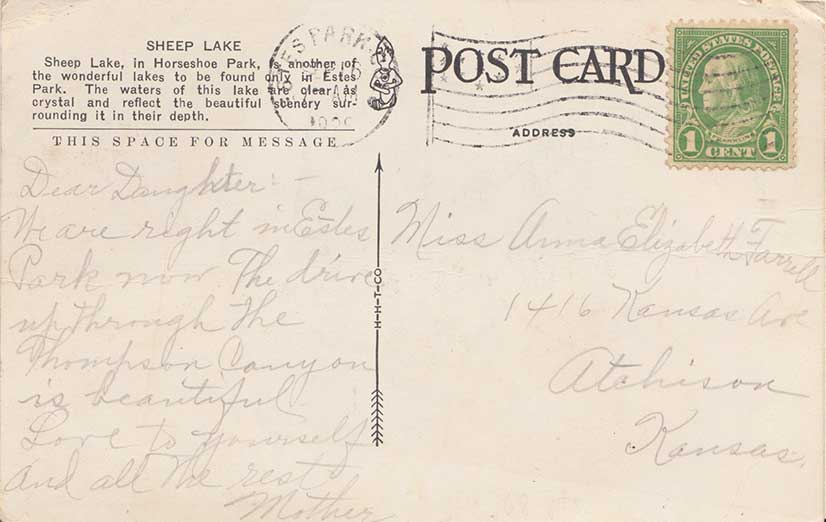 SHEEP LAKE
Sheep Lake, in Horseshoe Park, is another of
the wonderful lakes to be found only in Estes
Park. The waters of this lake are clear as
crystal and reflect the beautiful scenery sur-
rounding it in their depth.
THIS SPACE FOR MESSAGE
Dear Daughter:-
We are right in Estes
Park now. The drive
up through the
Thompson Canyon
is beautiful.
Love to yourself
and all the rest
Mother
H-H-T-CO
ESTES PARK
POST CARD
ADDRESS
UNITED STATES POSTAGE
FRANKLIN
1 CENT 1
Miss Anna Elizabeth Farrell
1416 Kansas Ave
Atchison
Kansas.